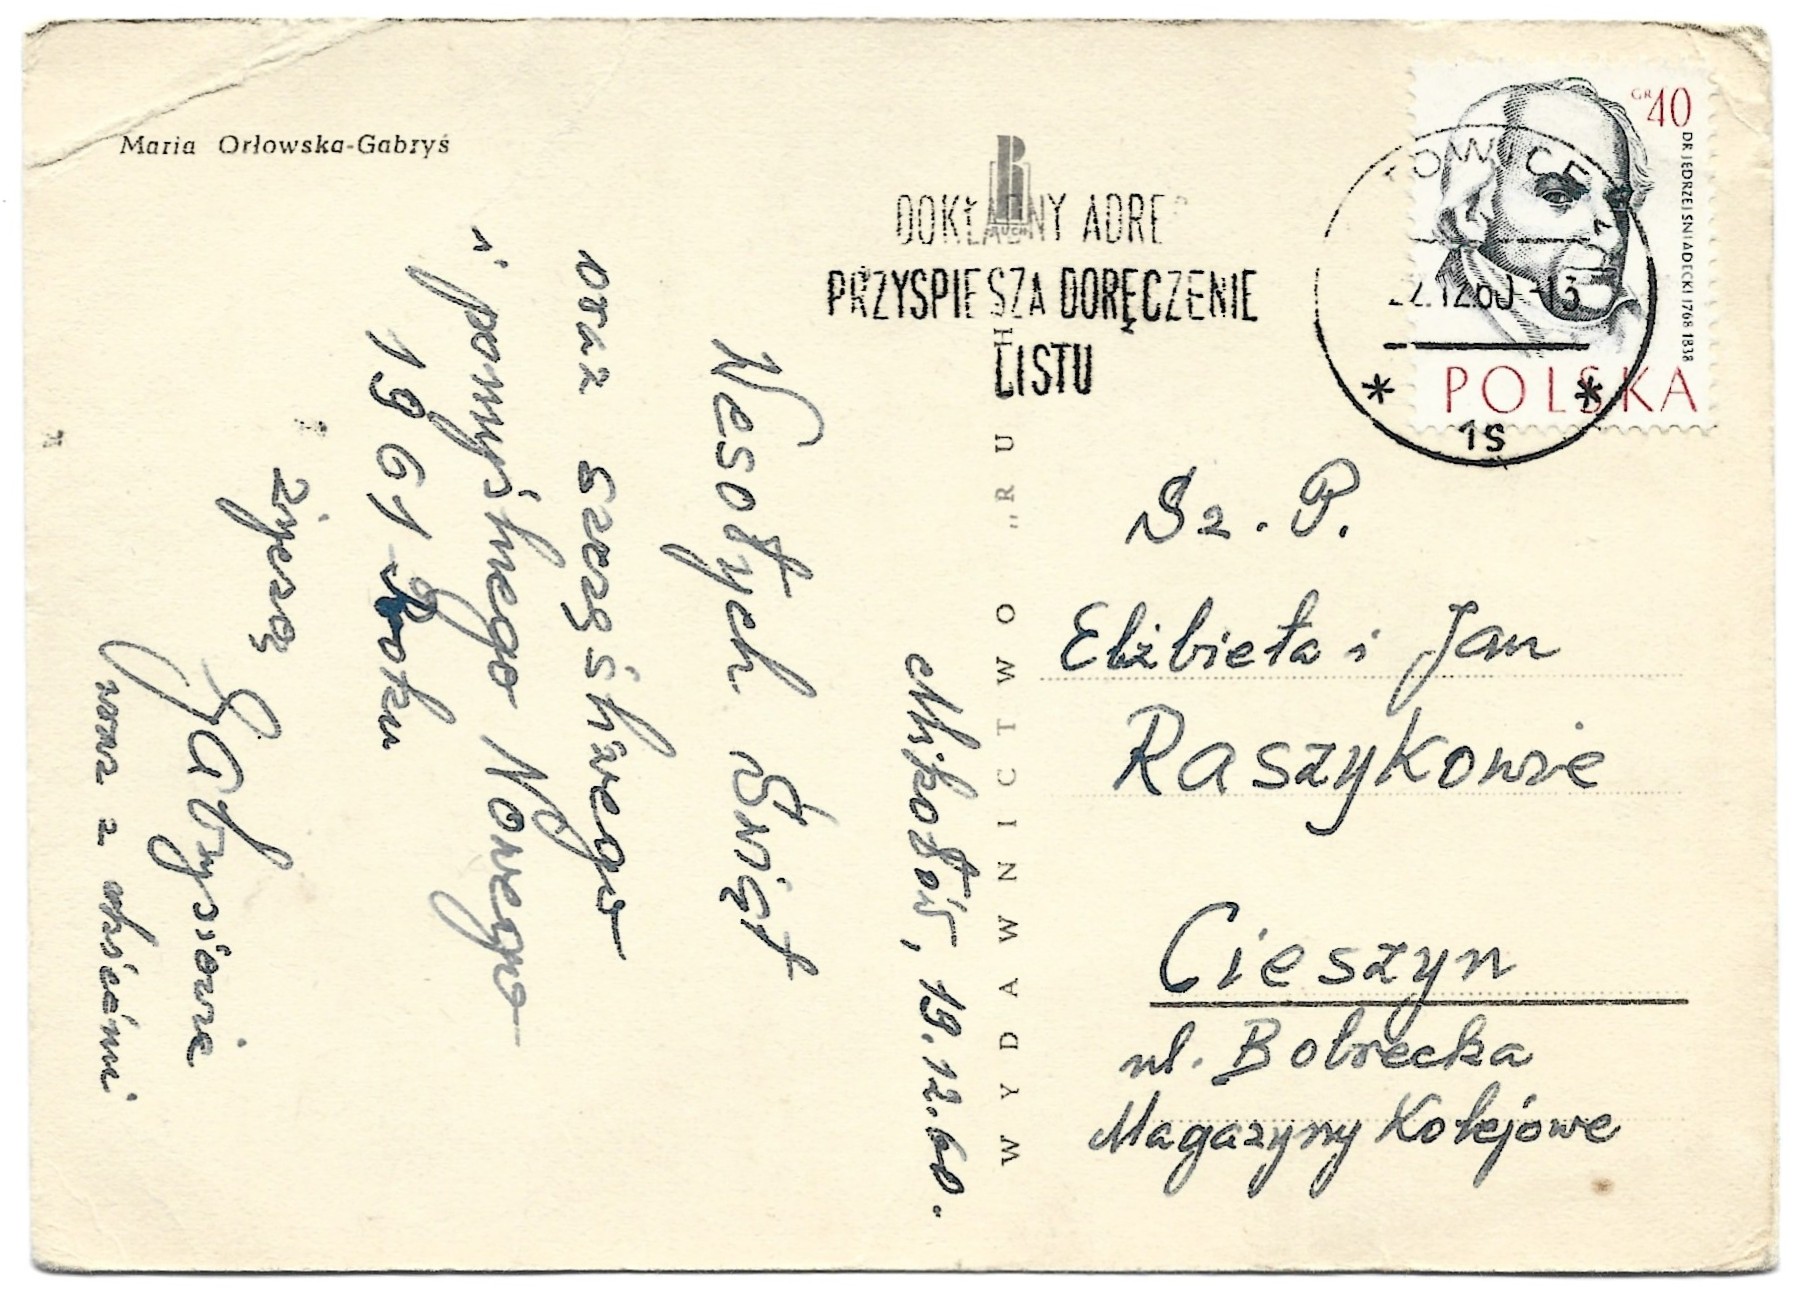 Maria Orłowska-Gabryś
RUCH
DOKŁADNY ADRE
PRZYSPIESZA DORĘCZENIE
LISTU
GR 40
DR JĘDRZEJ ŚNIADECKI 1768 1838
POLSKA
22.12.60-13
1s
WYDAWNICTWO „RUCH
Mikołów, 19.12.60.
Wesołych Świąt
oraz szczęśliwego
i pomyślnego Nowego
1961 Roku
życzą
Gabrysiowie
wraz z
Sz. P.
Elżbieta i Jan
Raszykowie
Cieszyn
ul. Bobrecka
Magazyny Kolejowe